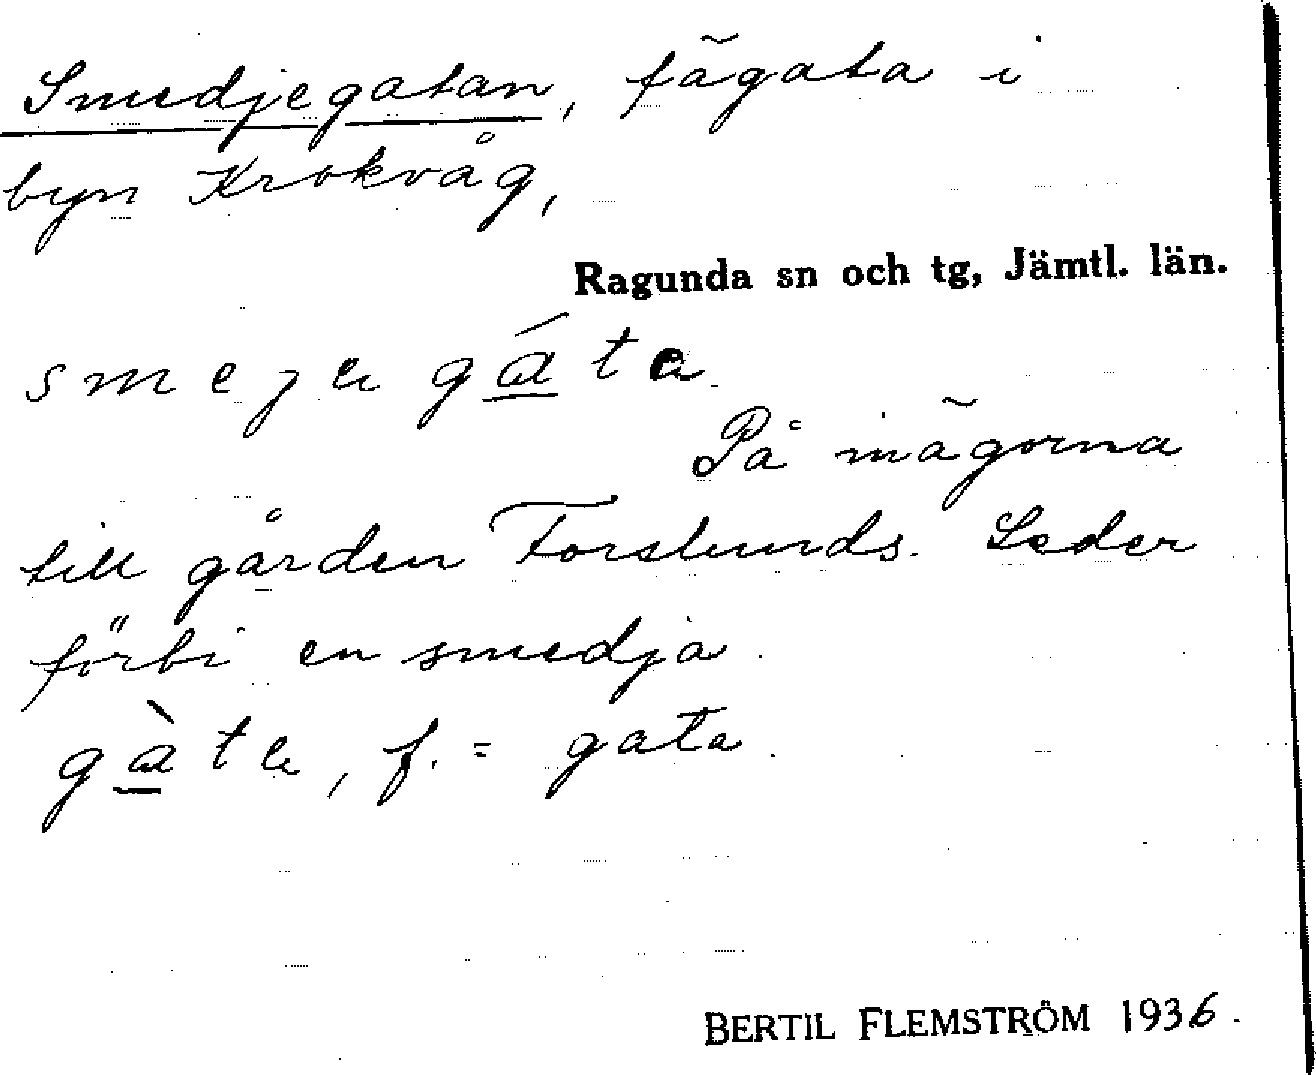 Smedjegatan, fägata i
byn Krokvåg,
Ragunda sn och tg, Jämtl. län.
På inägorna
till gården Forslunds. Leder
förbi en smedja.
f. = gata.
BERTIL FLEMSTRÖM 1936.